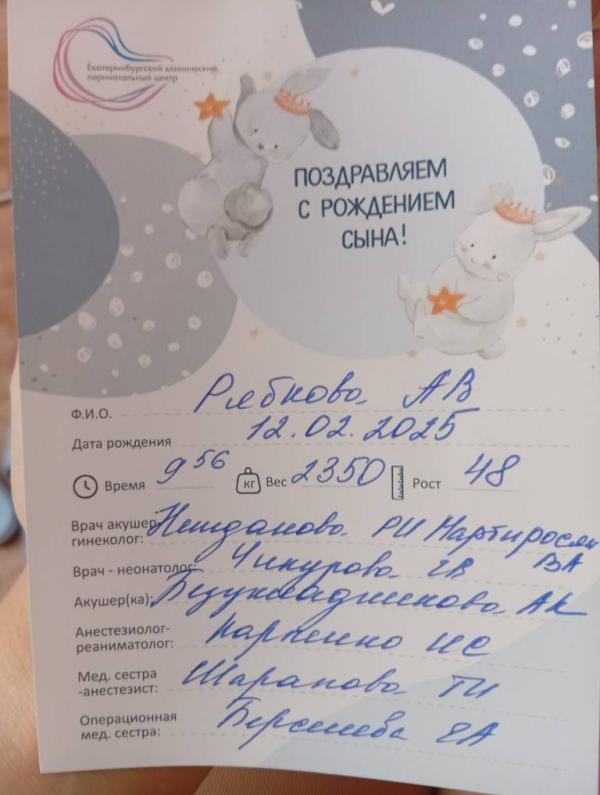 Екатеринбургский клинический
перинатальный центр
ПОЗДРАВЛЯЕМ
С РОЖДЕНИЕМ
СЫНА!
Ф.И.О. Рябкова АВ
Дата рождения 12.02.2025
Время 9 56 кг Вес 2350 Рост 48
Врач акушер-
гинеколог: РИ Мартиросян
ВА
Врач - неонатолог: Чикурова
Акушер(ка): АК
Анестезиолог-
реаниматолог: Карпенко ИС
Мед. сестра
-анестезист: Шарапова ТИ
Операционная
мед. сестра: Берсенева ЕА